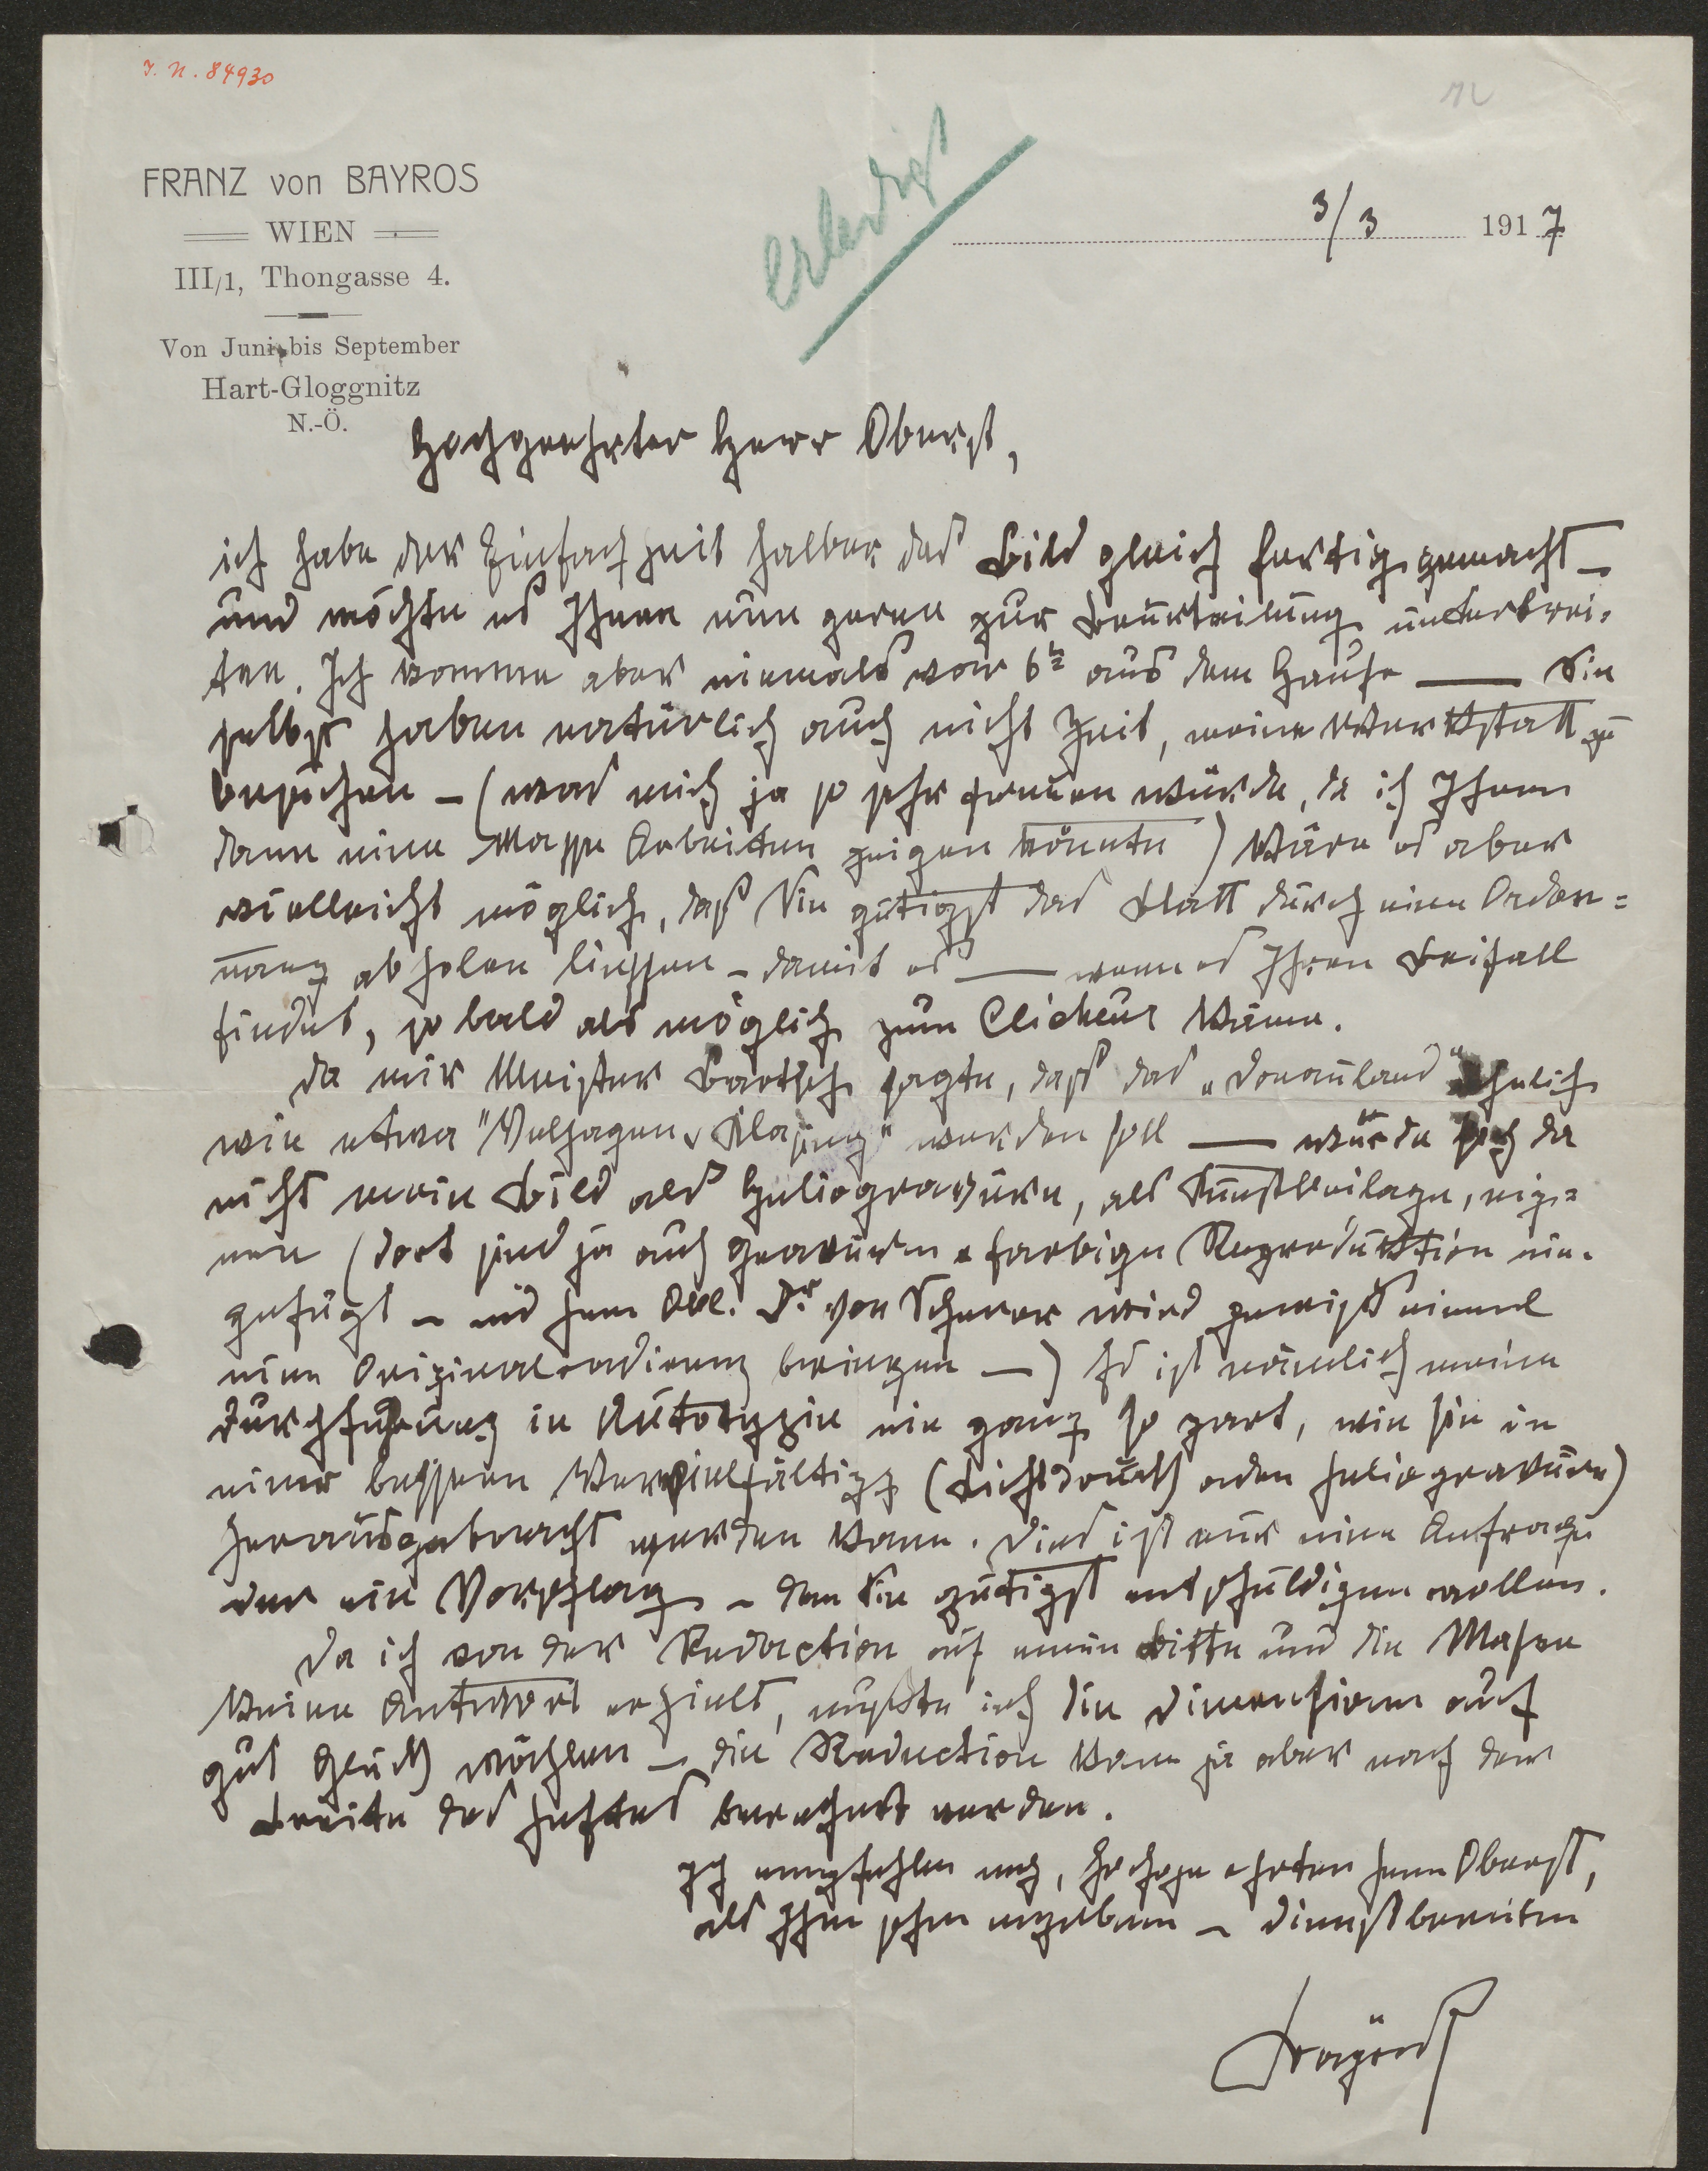 I. N. 84930
FRANZ von BAYROS
WIEN
III/1, Thongasse 4.
Von Juni bis September
Hart-Gloggnitz
N.-Ö.
Erledigt
3/3 1917
Hochgeehrter Herr Oberst,
ich habe der Einfachheit halber das Bild gleich fertig gemacht –
und möchte es Ihnen nun gerne zur Beurteilung unterbrei-
ten. Ich komme aber niemals vor 6h aus dem Hause — Sie
selbst haben natürlich auch nicht Zeit, meine Werkstatt zu
besuchen – (was mich ja so sehr freuen würde, da ich Ihnen
dann eine Mappe Arbeiten zeigen könnte) Wäre es aber
vielleicht möglich, daß Sie gütigst das Blatt durch eine Ordon=
nanz abholen liessen – damit es — wenn es Ihren Beifall
findet, so bald als möglich zum Clicheur käme.
Da mir Meister Bartsch sagte, daß das „Donauland" ähnlich
wie etwa "Velhagen & Klasing" werden soll — würde sich da
nicht mein Bild als Heliogravüre, als Kunstbeilage, eig=
nen (dort sind ja auch Gravuren & farbige Reproduktion ein-
gefügt – und Herr Obl. Dr. von Scherer wird gewiß einmal
eine Originalradierung bringen —) Es ist nämlich meine
Durchführung in Autotypie nie ganz so zart, wie sie in
einer bessern Vervielfältigg (Lichtdruck oder Heliogravüre)
herausgebracht werden kann. Dies ist nur eine Anfrage
oder ein Vorschlag – den Sie gütigst entschuldigen wollen.
Da ich von der Redaction auf meine Bitte um die Masse
keine Antwort erhielt, mußte ich die Dimensionen auf
gut Glück wählen – die Reduction kann ja aber nach der
Breite des Heftes berechnet werden.
Ich empfehle mich, hochgeehrter Herr Oberst,
als Ihr sehr ergebener – dienstbereiter
Bayros